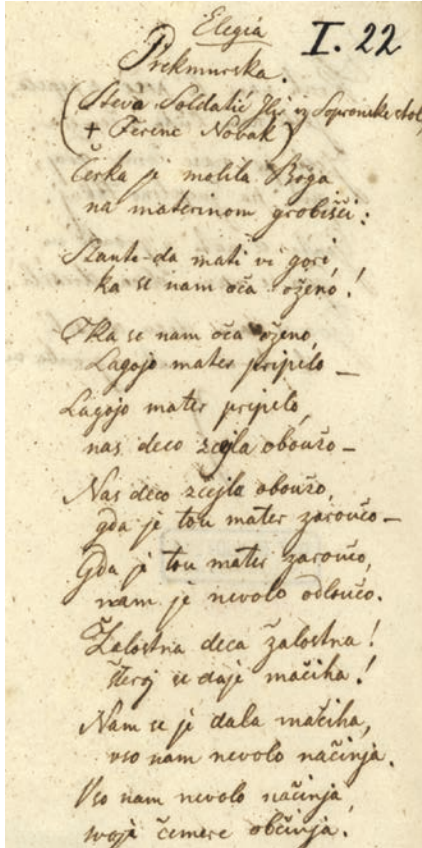 Elegia
I. 22
Prekmurska.
(Števa Soldatić iz Sopronske stol.
+ Ferenc Novak)
Čerka je molila Boga
na materinom grobišči:
Stante-da mati vi gori,
ka se nam oča oženo!
Ka se nam oča oženo,
Lagojo mater pripelo —
Lagojo mater pripelo,
nas deco zcejla oboužo —
Nas deco zcejla oboužo,
gda je tou mater zaroučo —
Gda je tou mater zaroučo,
nam je nevolo odloučo.
Žalostna deca žalostna!
šteroj se daje mačiha!
Nam se je dala mačiha,
vso nam nevolo načinja.
Vso nam nevolo načinja,
svoje čemere občinja.